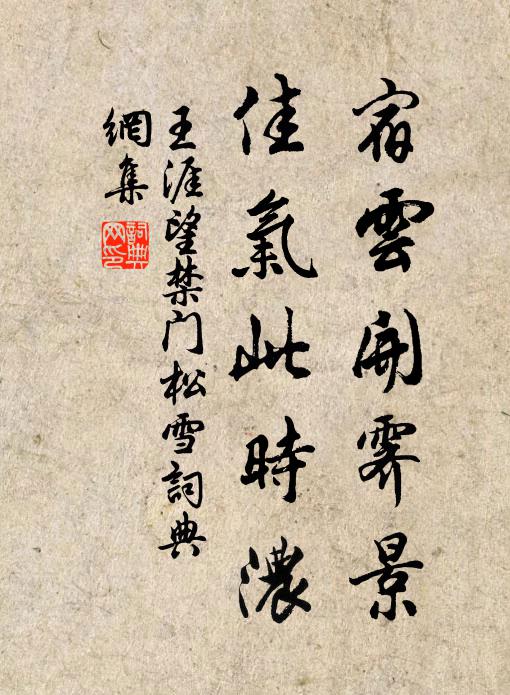 宿雲開霽景
佳氣此時濃
王涯望禁门松雪詞典
網集
詞典
网印